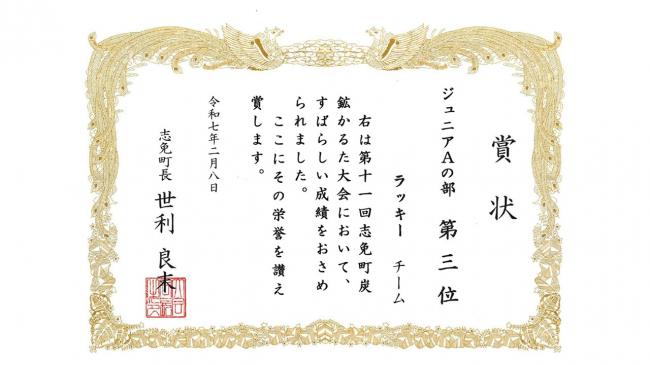 賞状
ジュニアAの部 第三位
ラッキー チーム
右は第十一回志免町炭
鉱かるた大会において、
すばらしい成績をおさめ
られました。
ここにその栄誉を讃え
賞します。
令和七年二月八日
志免町長 世利良末